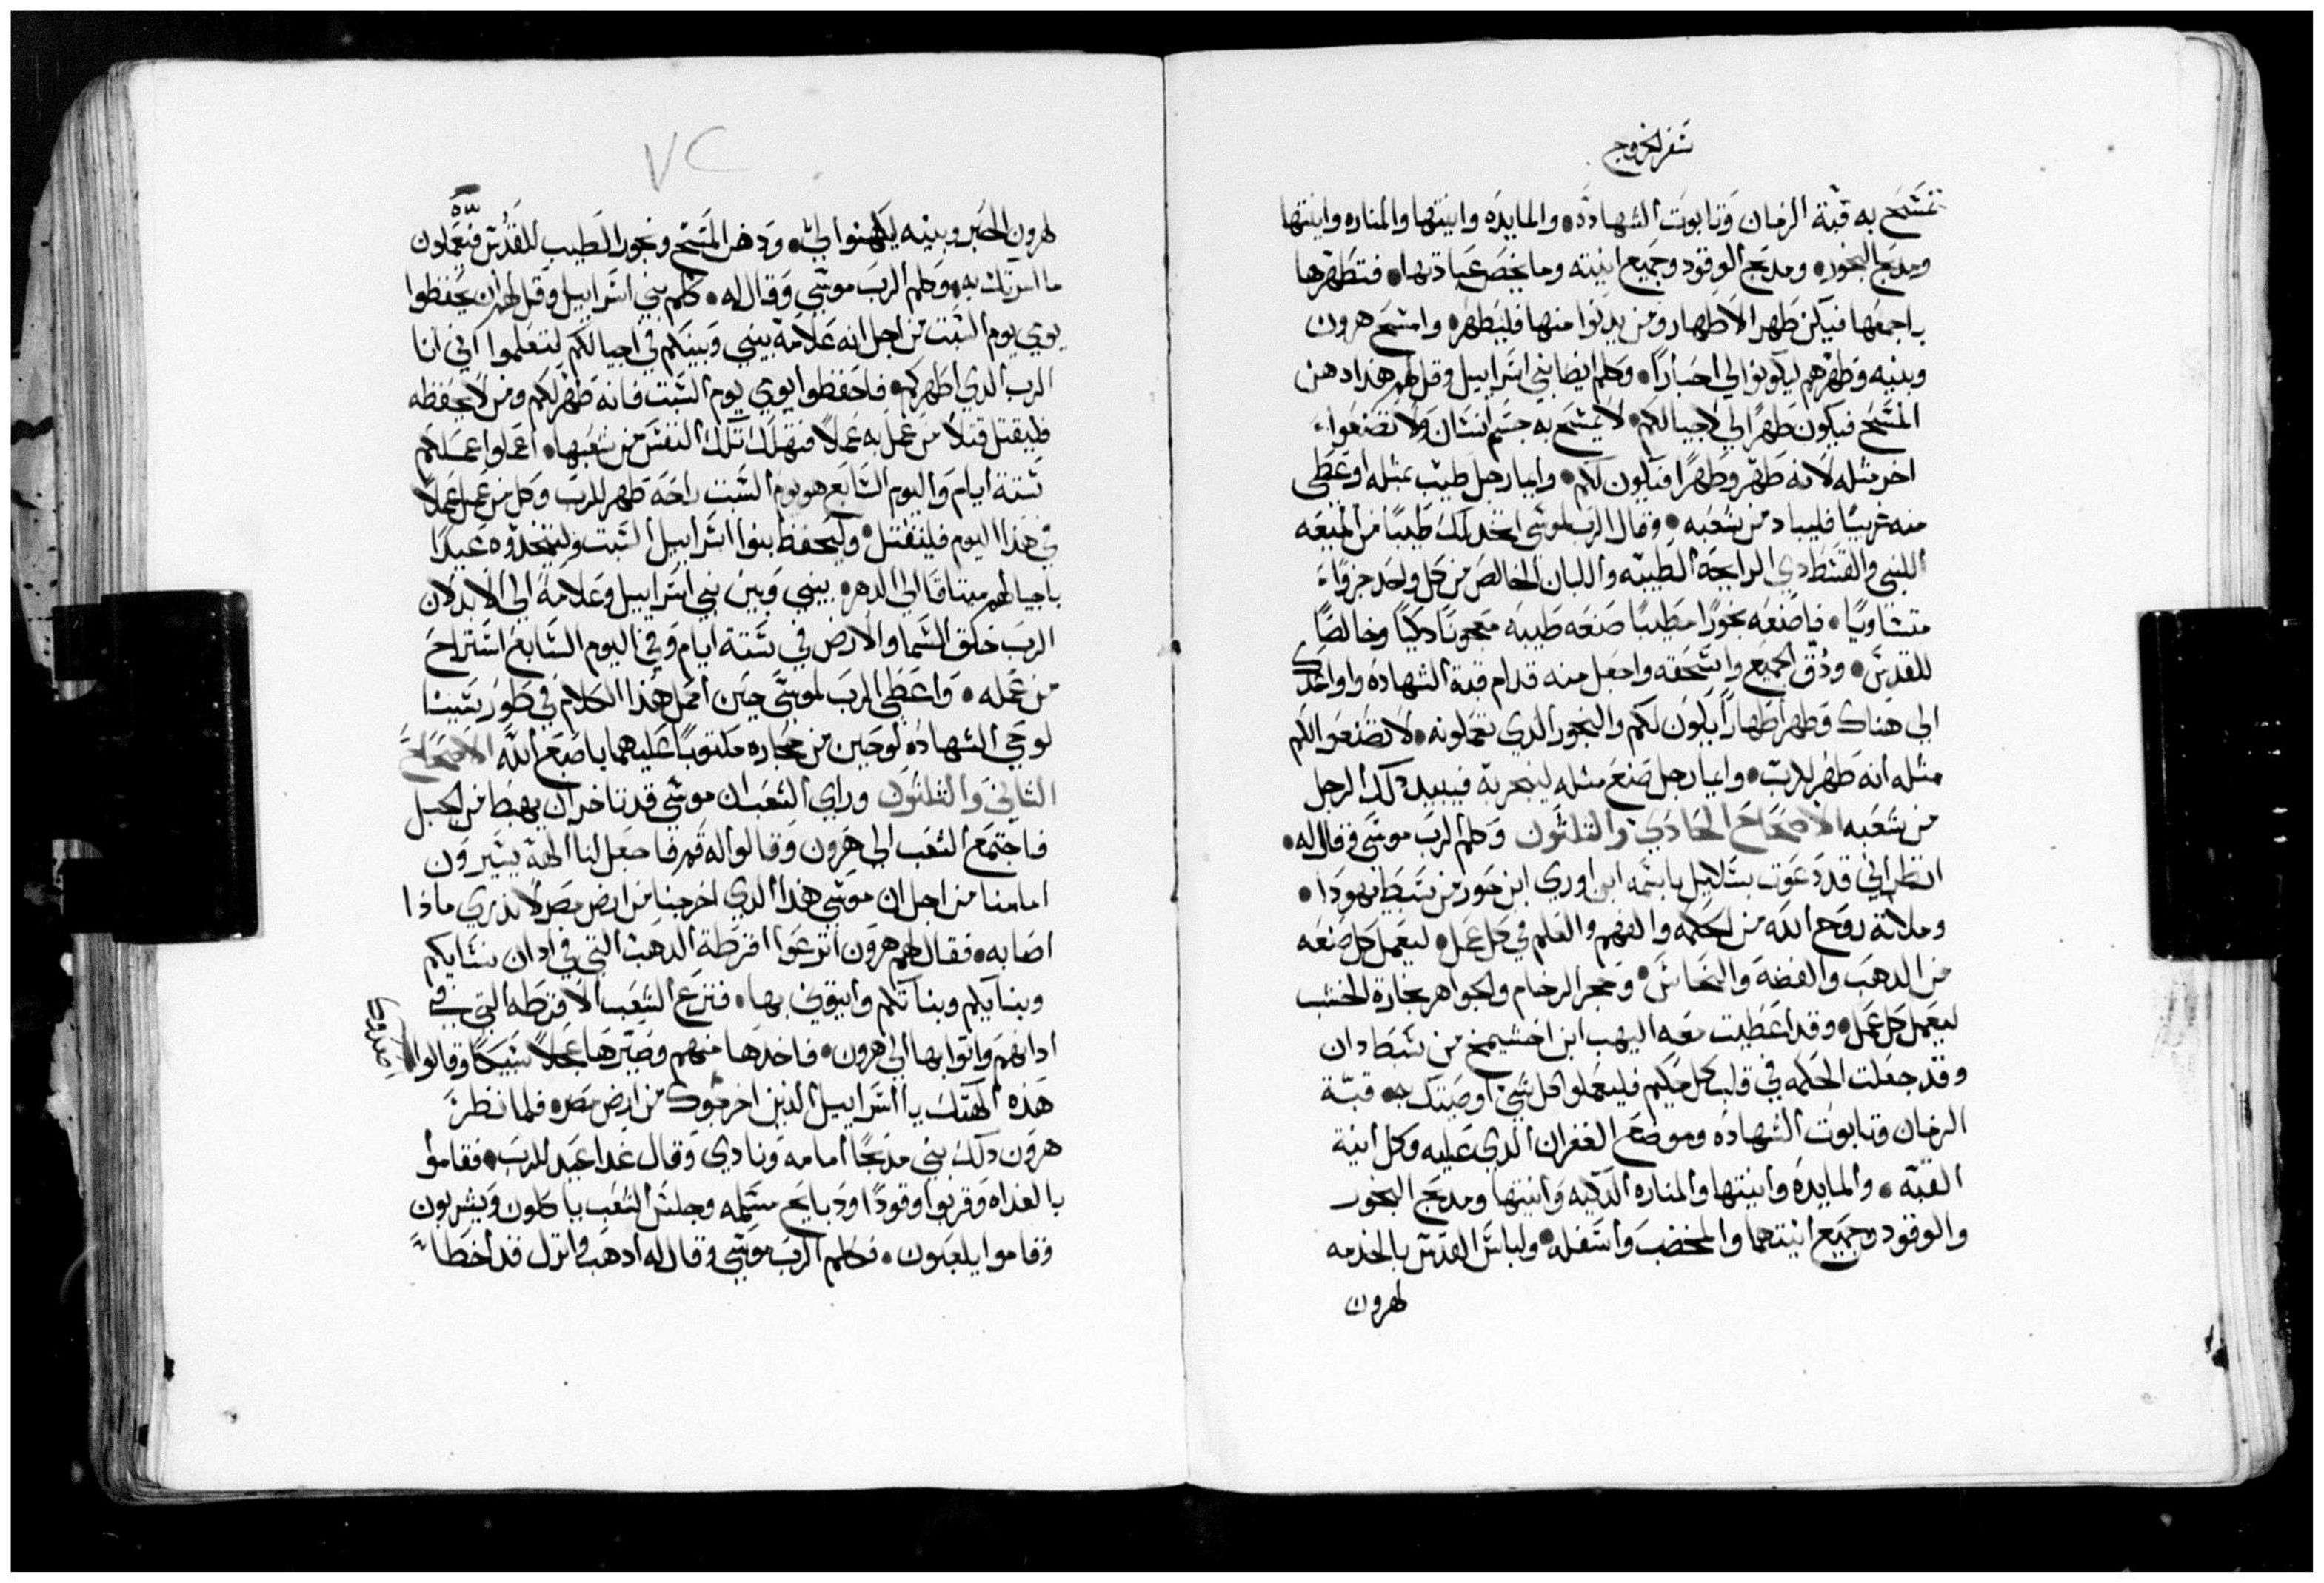 سفر الخروج
تمسح به قبة الزمان وتابوت الشهاده والمايده وانيتها والمناره وانيتها
ومدبح البخور ومدبح الوقود وجميع انيته وما يخص عبادتها فتطهرها
باجمعها فيكن طهر الاطهار ومن يدنوا منها فليطهر وامسح هرون
وبنيه وطهرهم ليكونوا لي احبارا وكلم ايضا بني اسراييل وقل لهم هذا دهن
المسح فيكون طهرا لي لاجيالكم لا يمسح به جسم انسان ولا تصنعوا
اخر مثله لانه طهر وطهرا فيكون لكم وايما رجل طيب بمثله او عطى
منه غريبا فليباد من شعبه وقال الرب لموسى اتخد لك طيبا من الميعه
اللبني والقسط دي الرايحة الطيبه واللبان الخالص من كل واحد جزوا
متساويا فاصنعه بخورا مطيبا صنعه طيبه معجونا دكيا وخالصا
للقدس ودق الجميع واسحقه واجعل منه قدام قبة الشهاده واواعدك
الى هناك وطهر اطهارا يكون لكم والبخور الدي تعملونه لا تصنعوا لكم
مثله انه طهر للرب وايما رجل صنع مثله ليبخر به فيبيد دلك الرجل
من شعبه الاصحاح الحادي والثلثون وكلم الرب موسى وقال له
انظر اني قد دعوت بتلاييل باسمه ابن اوري ابن حور من سبط يهودا
وملاته روح الله من الحكمه والفهم والعلم في كل عمل ليعمل كل صنعه
من الدهب والفضه والنحاس وحجر الرخام والجواهر نجارة الخشب
ليعمل كل عمل وقد اعطيت معه اليهب ابن اخشيمخ من سبط دان
وقد جعلت الحكمه في قلب كل حكيم فليعملوا كل شي اوصيتك به قبة
الزمان وتابوت الشهاده وموضع الغفران الدي عليه وكل انية
القبه والمايده وانيتها والمناره الدكيه وانيتها ومدبح البخور
والوقود وجميع انيتهما والمخضب واسفله ولباس القدس بالخدمه
لهرون
٧٢
لهرون الحبر وبنيه يكهنوا لي ودهن المسح وبخور الطيب للقدس فيعملون
ما امرتك به وكلم الرب موسى وقال له كلم بني اسراييل وقل لهم ان يحفظوا
يومي يوم السبت من اجل انه علامة بيني وبينكم في اجيالكم لتعلموا اني انا
الرب الدي اطهركم فاحفظوا يومي يوم السبت فانه طهر لكم ومن لا يحفظه
فليقتل قتلا من عمل به عملا فتهلك تلك النفس من شعبها اعملوا عملكم
ستة ايام واليوم السابع هو يوم السبت راحة طهر للرب وكل من عمل عملا
في هذا اليوم فليقتل وليحفظ بنوا اسراييل السبت وليتخدوه عيدا
باجيالهم ميتاقا الى الدهر بيني وبين بني اسراييل وعلامة الى الابد لان
الرب خلق السما والارض في ستة ايام وفي اليوم السابع استراح
من عمله واعطى الرب لموسى حين اكمل هذا الكلام في طور سينا
لوحي الشهاده لوحين من حجاره مكتوبا عليهما باصبع الله الاصحاح
الثاني والثلثون وراي الشعب ان موسى قد تاخر ان يهبط من الجبل
فاجتمع الشعب الى هرون وقالوا له قم فاجعل لنا الهة يسيرون
امامنا من اجل ان موسى هذا الدي اخرجنا من ارض مصر لا ندري ماذا
اصابه فقال لهم هرون انزعوا اقرطة الدهب التي في ادان نسايكم
وبنايكم وبناتكم وايتوني بها فنزع الشعب الاقرطه التي في
ادانهم واتوا بها الى هرون فاخدها منهم وصيرها عجلا سبيكا وقالوا
هذه الهتك يا اسراييل الدين اخرجوك من ارض مصر فلما نظر
هرون دلك بني مدبحا امامه ونادي وقال غدا عيد للرب فقاموا
بالغداه وقربوا وقودا ودبايح مسلمه وجلس الشعب ياكلون ويشربون
وقاموا يلعبون فكلم الرب موسى وقال له ادهب وانزل قد اخطا